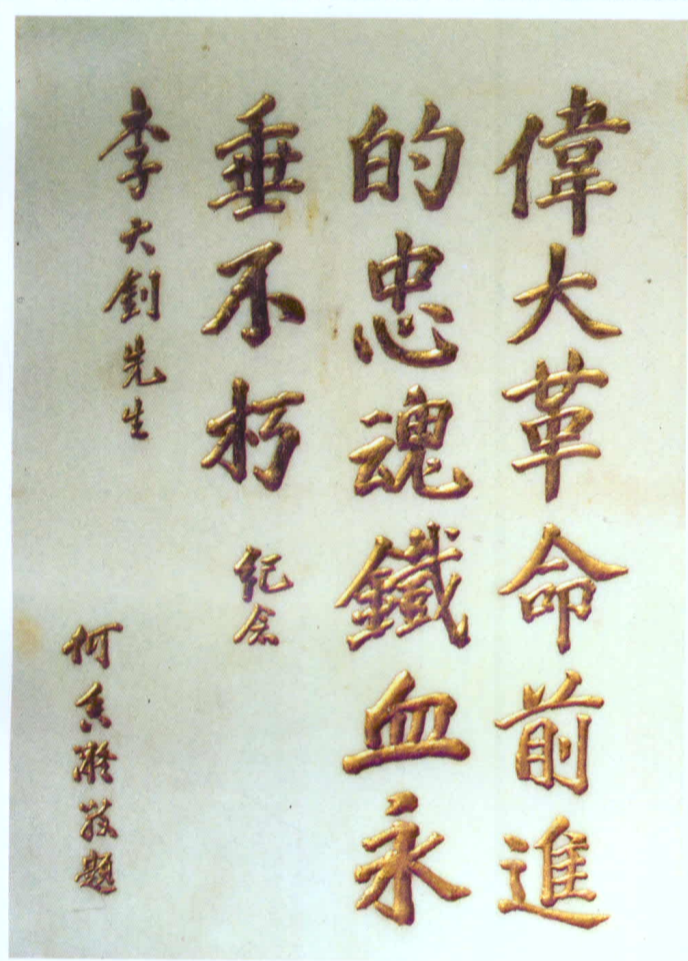 偉大革命前進
的忠魂鐵血永
垂不朽 紀念
李大釗先生
何香凝敬題